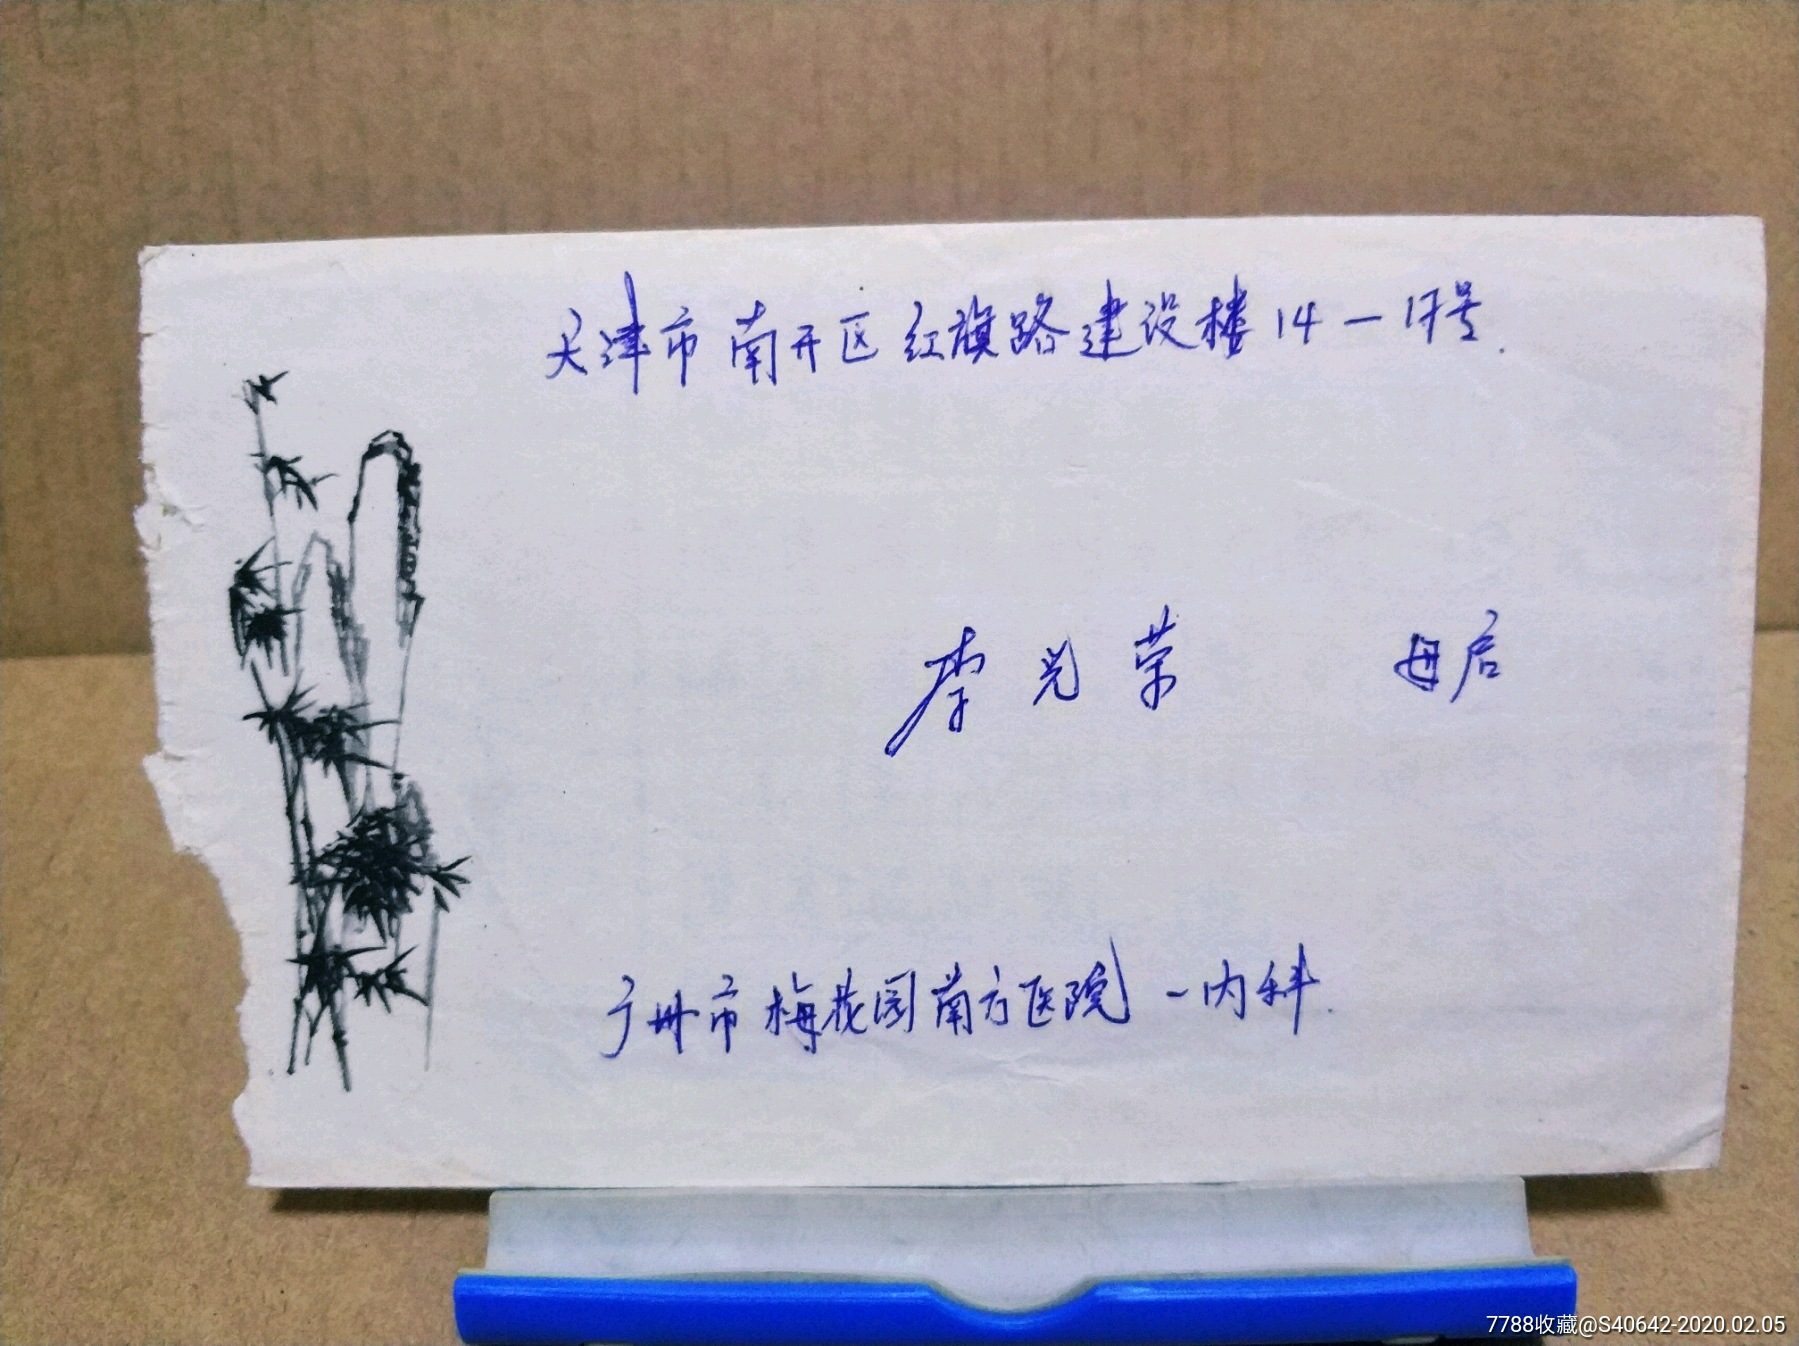 天津市南开区红旗路建设楼14一17号.
李光荣 母启
广州市梅花园南方医院一内科.
7788收藏@S40642-2020.02.05